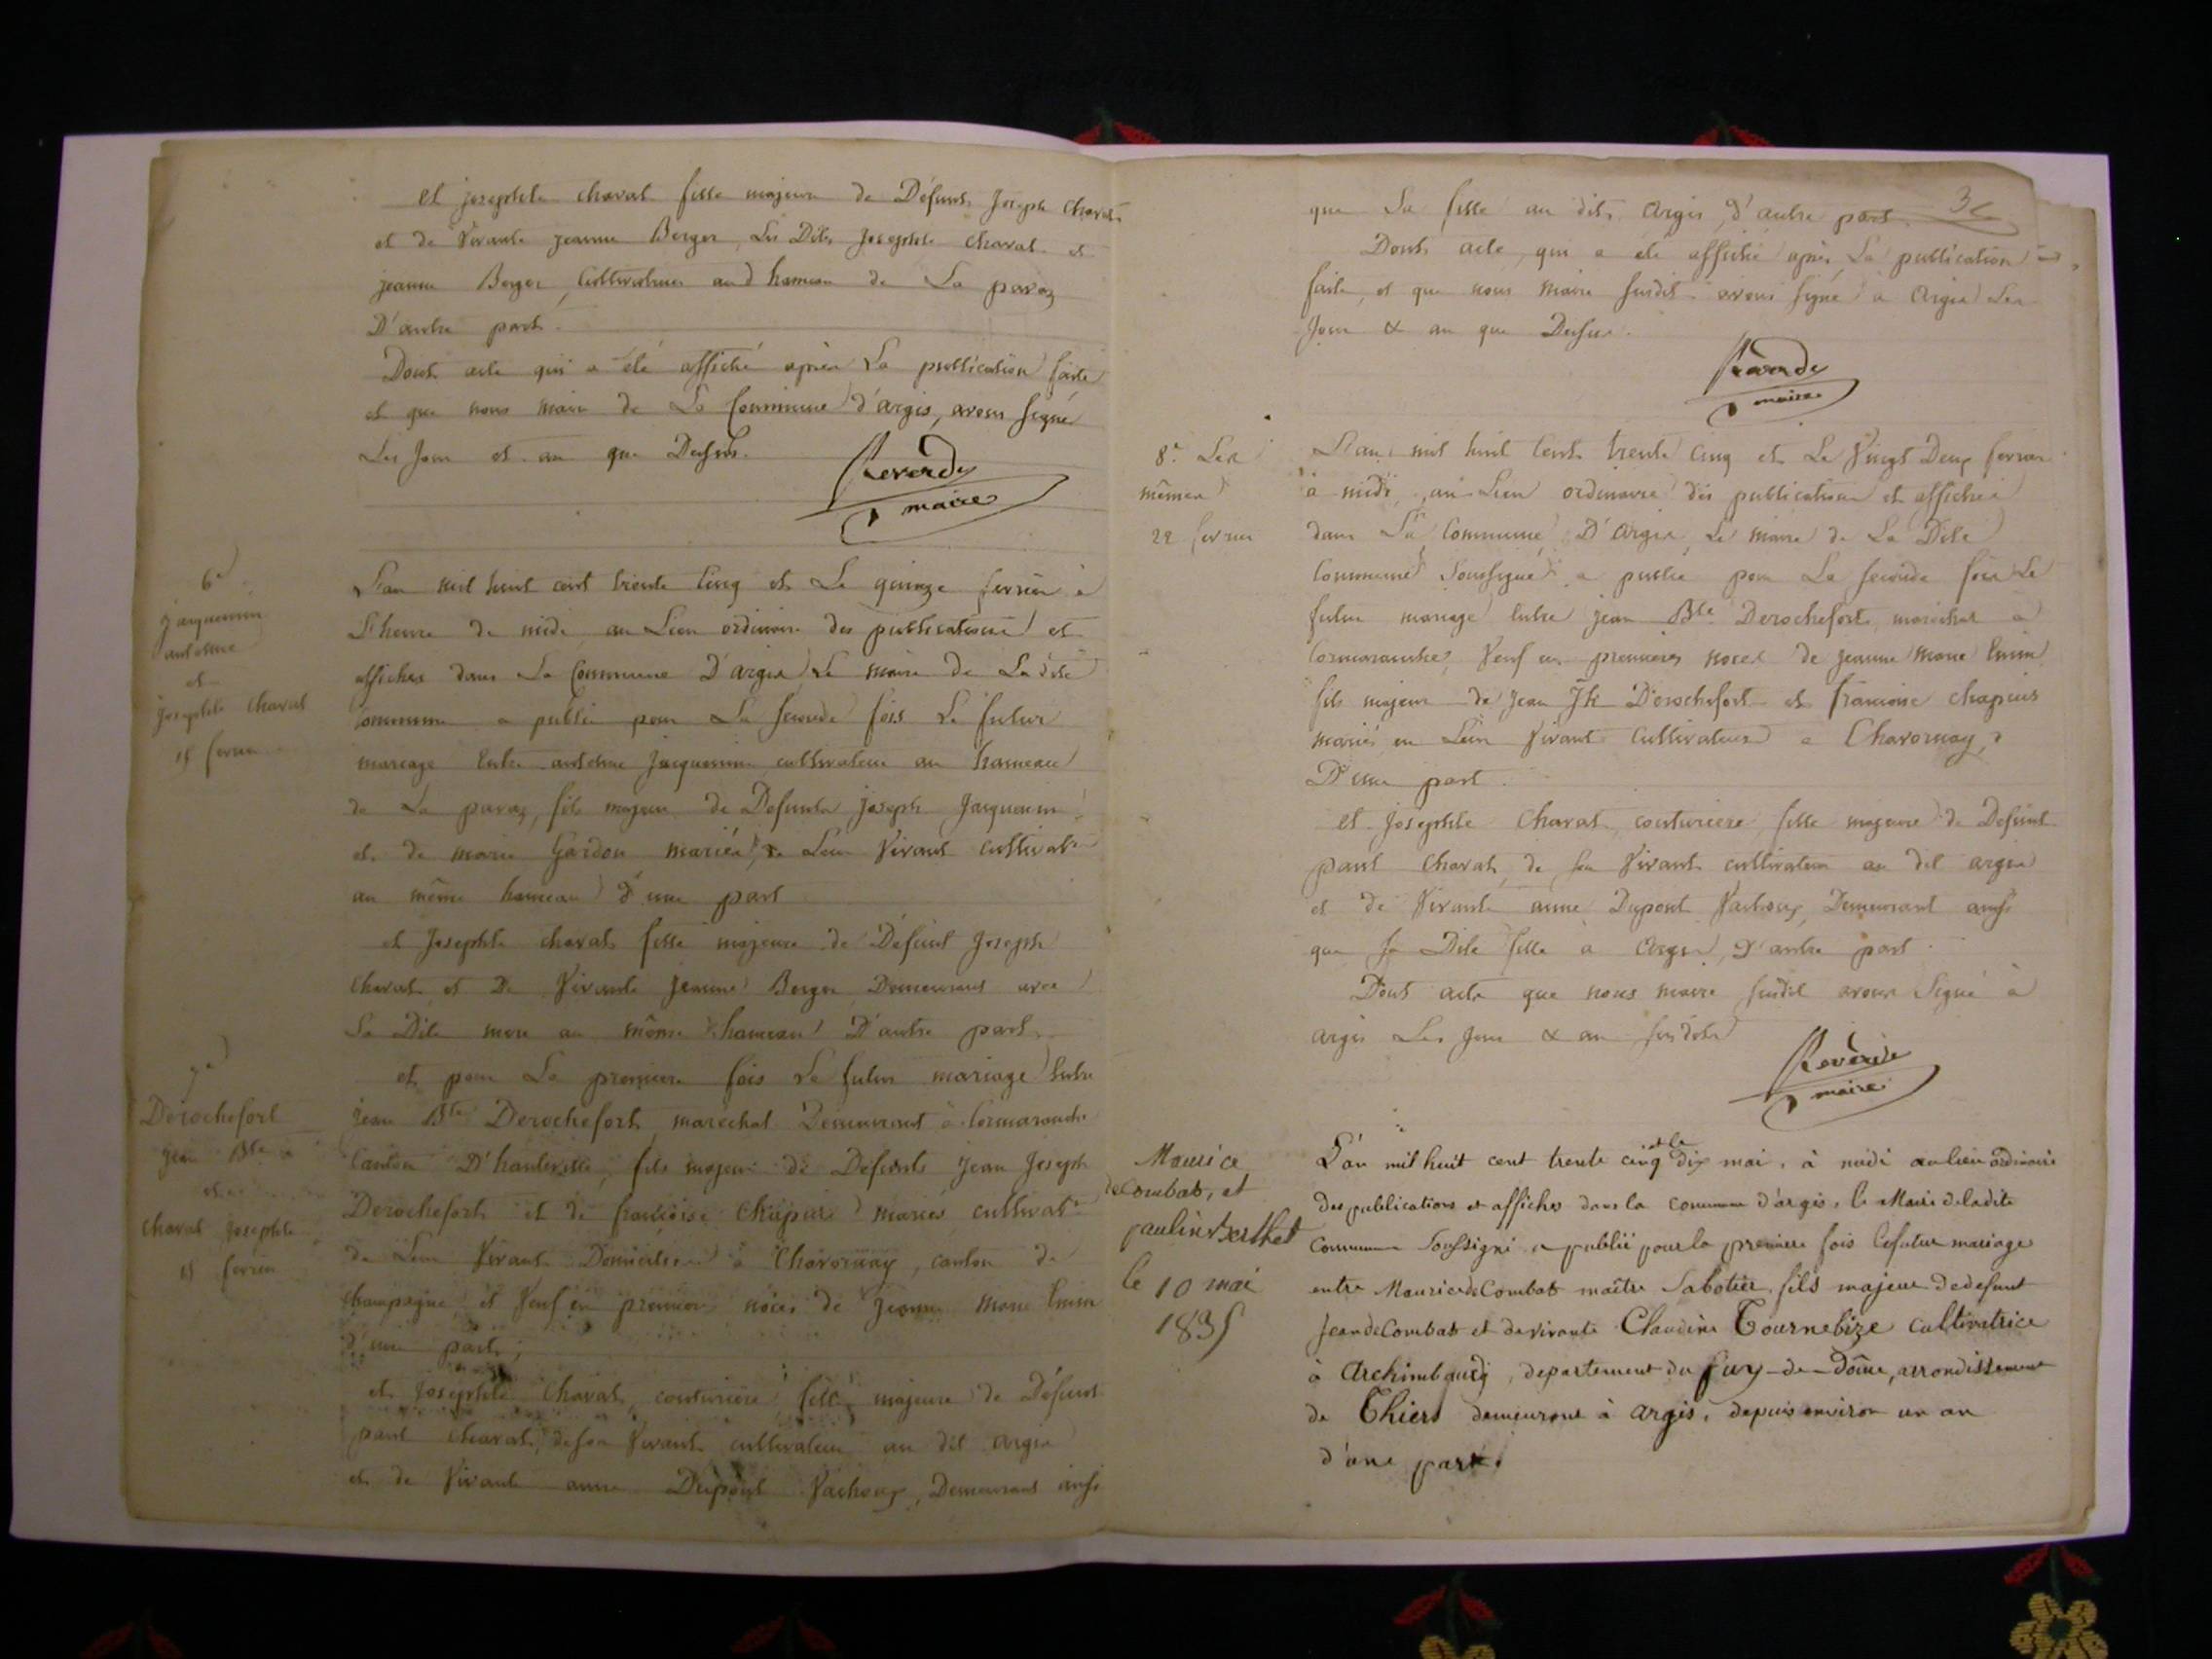 et josephte chavat fille majeure de Défunts Joseph Chavat
et de Vivante jeanne Berger, Les Dites Josephte Chavat et
jeanne Berger, Cultivatrices aud hameau de La paraz
D'autre part.
Dont acte qui a été affiché après La publication faite
et que nous maire de La Commune d'argis, avons signé
Les Jour et an que Dessus.
Reverdy
maire
6e
jacquemin
antelme
et
josephte Chavat
15 fevrier
L'an mil huit cent trente Cinq et Le quinze fevrier à
L'heure de midi au Lieu ordinaire des publications et
affiches dans La Commune D'argis Le maire de Ladite
Commune a publié pour La seconde fois Le futur
mariage Entre antelme Jacquemin cultivateur au hameau
de La paraz, fils majeur de Defunts joseph Jacquemin
et de marie Gardon mariés, de Leur Vivant cultivatrs
au même hameau d'une part
et Josephte chavat fille majeure de Défunt Joseph
Chavat et De Vivante Jeanne Berger Demeurant avec
Sa Dite mere au même hameau D'autre part.
et pour La premiere fois Le futur mariage Entre
7e
Derochefort
jean Bte
et
Chavat josephte
15 fevrier
jean Bte Derochefort, maréchal Demeurant à Cormaranche
Canton D'hauteville, fils majeur de Defunts Jean Joseph
Derochefort et de françoise Chapuis mariés cultivatrs
de Leur Vivant Domiciliés à Chavornay, canton de
Champagne et Veuf en premieres nôces de Jeanne Marie
d'une part,
et Josephte Chavat, couturière fille majeure de Défunt
paul Chavat, de son Vivant cultivateur au dit argis
et de Vivante anne Dupont Vachoux, Demeurant ainsi
que Sa fille au dit, Argis, d'autre part.
Dont acte, qui a été affiché après La publication
faite, et que nous Maire susdit avons signé à Argis Les
Jour & an que Dessus.
Reverdy
maire
8e Les
mêmes
22 fevrier
L'an mil huit Cent trente Cinq et Le Vingt Deux fevrier
à midi, au Lieu ordinaire des publications et affiches
dans La Commune D'Argis, Le maire de La Dite
Commune Soussigné a publié pour La seconde fois Le
futur mariage Entre jean Bte Derochefort, maréchal à
Cormaranche, Veuf en premieres noces de jeanne Marie
fils majeur de Jean Jh Derochefort et françoise chapuis
mariés en Leur Vivant Cultivateurs à Chavornay,
D'une part.
et Josephte Chavat, couturiere fille majeure de Defunt
paul Chavat, de son Vivant cultivateur au dit argis
et de Vivante anne Dupont Vachoux, Demeurant ainsi
que sa Dite fille à Argis, D'autre part.
Dont acte que nous maire susdit avons Signé à
argis Les Jour & an susdits
Reverdy
maire
Maurice
deCombas, et
pauline Berthet
le 10 mai
1835
L'an mil huit cent trente cinq et le dix mai, à midi au lieu ordinaire
des publications et affiches dans la commune d'argis, le Maire de ladite
Commune Soussigné a publié pour la premiere fois le futur mariage
entre Maurice deCombas maître Sabotier, fils majeur de defunt
Jean deCombas et de vivante Claudine Tournebize cultivatrice
à Archimbaud, departement du puy-de-Dôme, arrondissement
de Thiers demeurant à argis, depuis environ un an
d'une part.